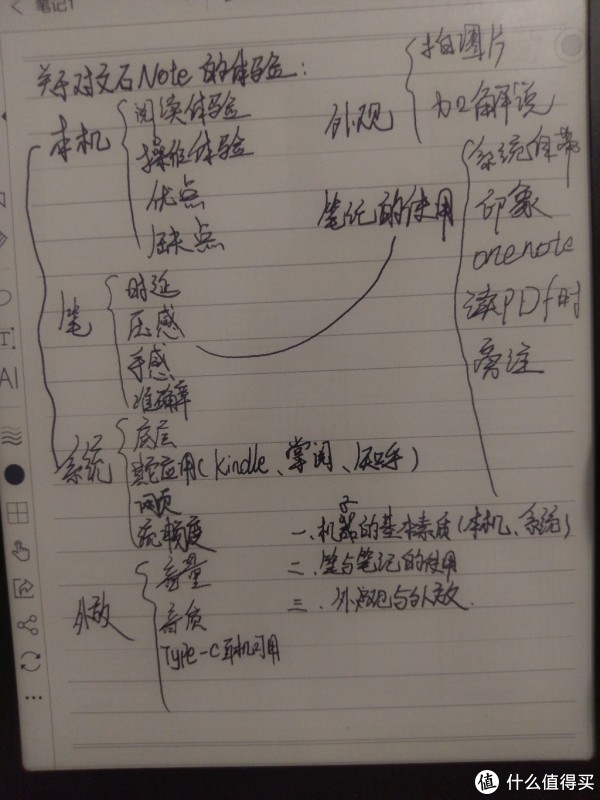 笔记1
关于对文石Note的体验:
本机
阅读体验
操作体验
优点
缺点
笔
时延
压感
手感
准确率
系统
底层
应用(kindle、掌阅、知乎)
网页
流畅度
外放
音量
音质
Type-C耳机可用
外观
拍图片
加解说
笔记的使用
系统自带
印象
onenote
读PDf时
旁注
一、机子的基本素质(本机、系统)
二、笔与笔记的使用
三、外观与外放.
T
AI
值 什么值得买